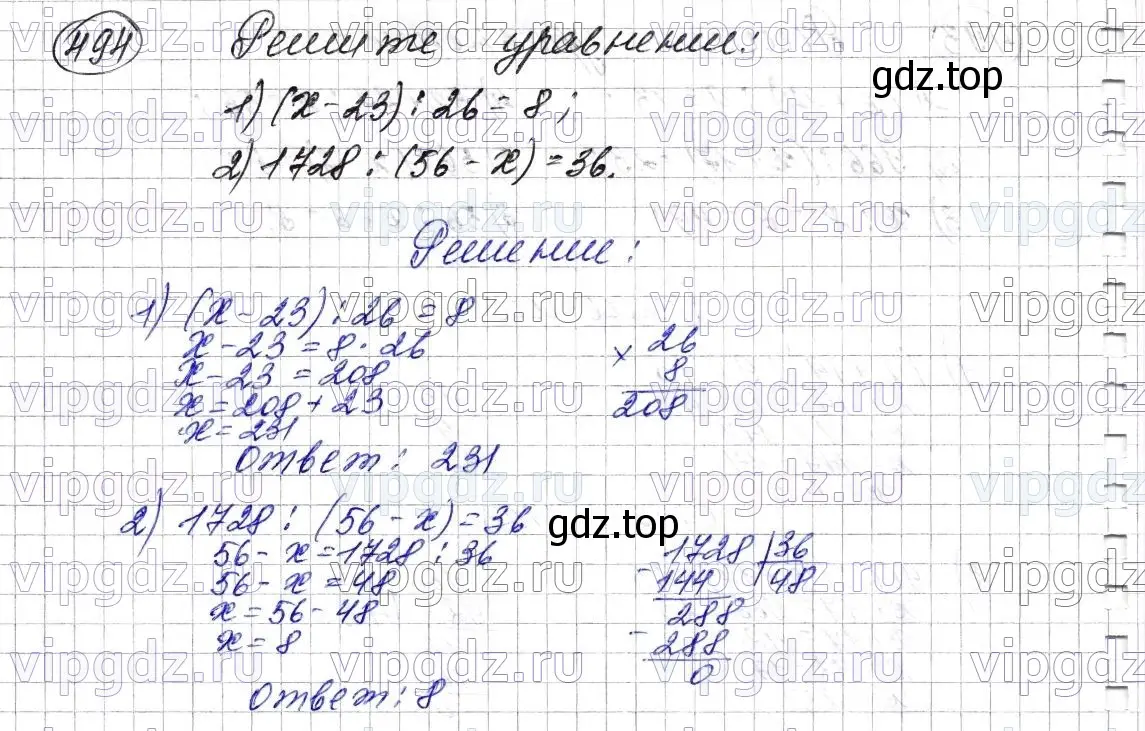 494 Решите уравнении:
gdz.top
1) (х - 23) : 26 = 8;
2) 1728 : (56 - х) = 36.
Решении:
1) (х - 23) : 26 = 8
х - 23 = 8 · 26
х - 23 = 208
х = 208 + 23
х = 231
× 26
8
208
Ответ: 231
2) 1728 : (56 - х) = 36
gdz.top
56 - х = 1728 : 36
56 - х = 48
х = 56 - 48
х = 8
- 1728 | 36
144 48
288
- 288
0
Ответ: 8
vipgdz.ru